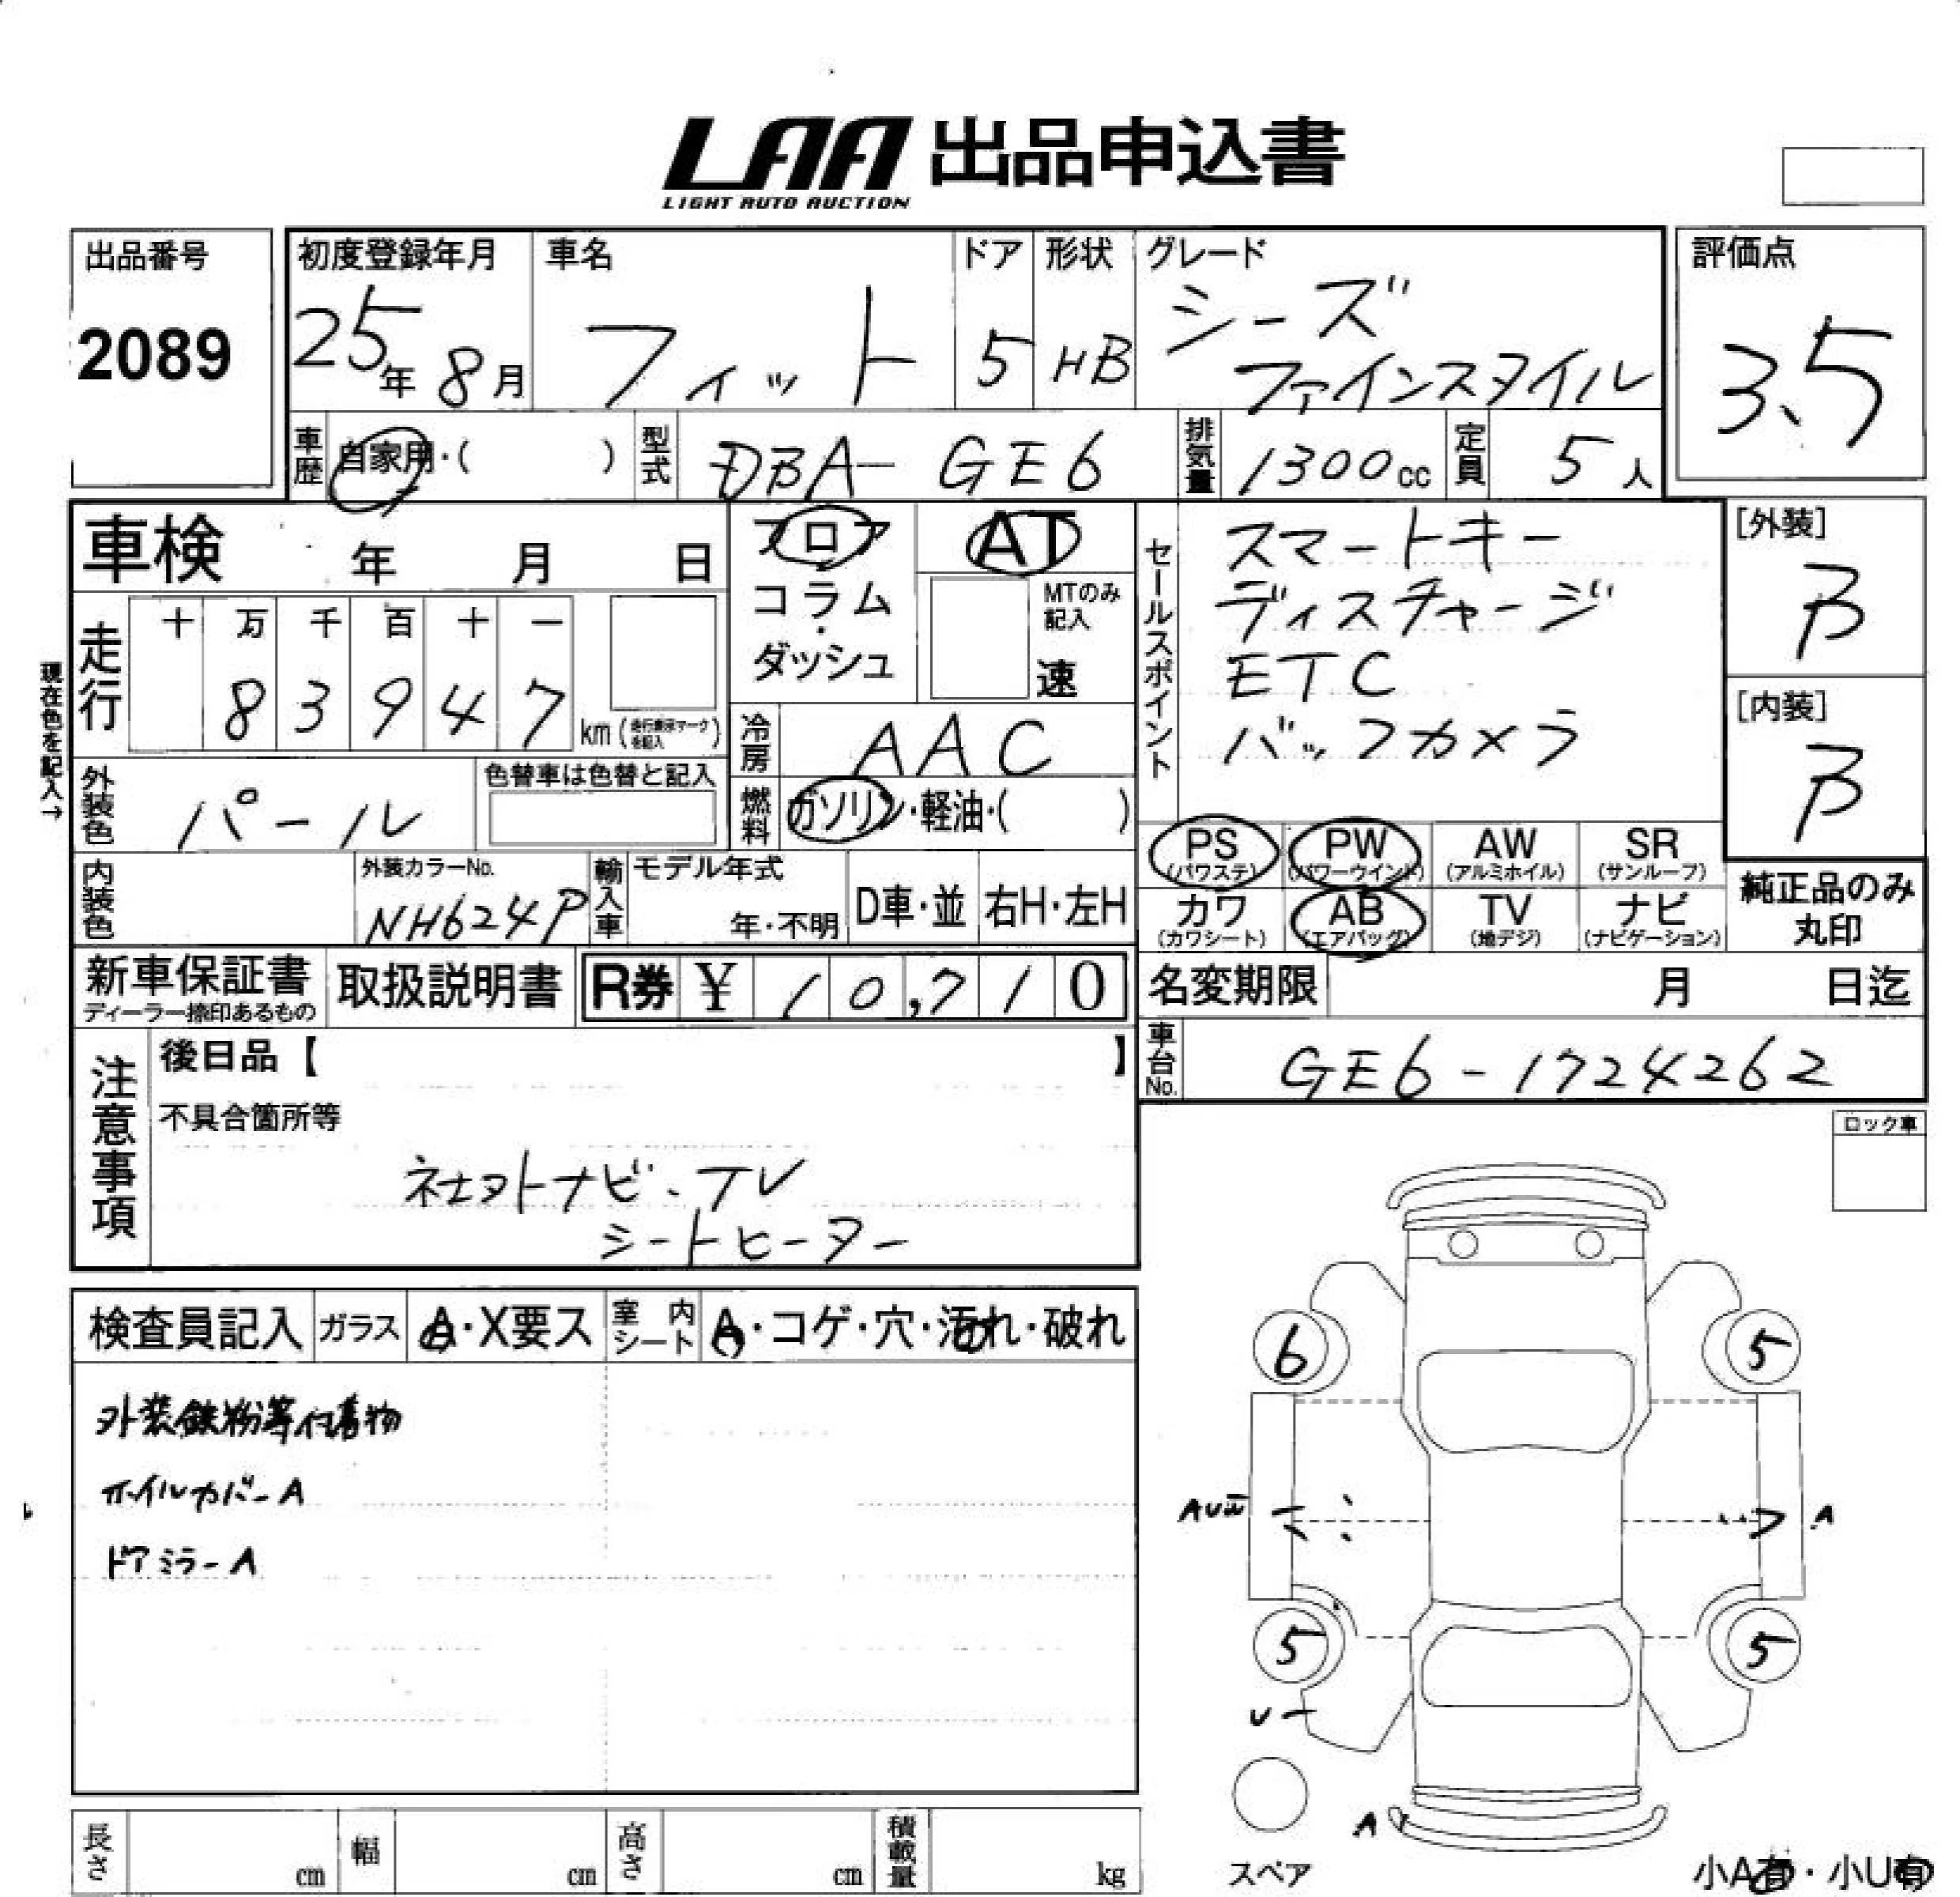 LAA 出品申込書
LIGHT AUTO AUCTION
出品番号
2089
初度登録年月
25年 8月
車名
フィット
ドア
5
形状
HB
グレード
シーズ
ファインスタイル
評価点
3.5
車歴 自家用・( )
型式 DBA- GE6
排気量 1300cc
定員 5人
車検 年 月 日
フロア
コラム
・
ダッシュ
AT
MTのみ
記入
速
セールスポイント
スマートキー
ディスチャージ
ETC
バックカメラ
[外装]
B
[内装]
B
現在色を記入→
走行
十 万 千 百 十 一
8 3 9 4 7
km(走行表示マークを記入)
冷房 AAC
外装色 パール
色替車は色替と記入
燃料 ガソリン・軽油・( )
PS
(パワステ)
PW
(パワーウインド)
AW
(アルミホイル)
SR
(サンルーフ)
カワ
(カワシート)
AB
(エアバッグ)
TV
(地デジ)
ナビ
(ナビゲーション)
純正品のみ
丸印
内装色
外装カラーNo.
NH624P
輸入車
モデル年式
年・不明
D車・並
右H・左H
新車保証書
ディーラー捺印あるもの
取扱説明書
R券 ¥ 10,710
名変期限 月 日迄
車台No. GE6-1724262
注意事項
後日品【 】
不具合箇所等
社外ナビ、TV
シートヒーター
ロック車
検査員記入
ガラス
A・X要ス
室内シート
A・コゲ・穴・汚れ・破れ
外装鉄粉等付着物
ホイルカバーA
ドアミラーA
6
5
A
5
5
U
A
スペア
小A有・小U有
長さ cm
幅 cm
高さ cm
積載量 kg